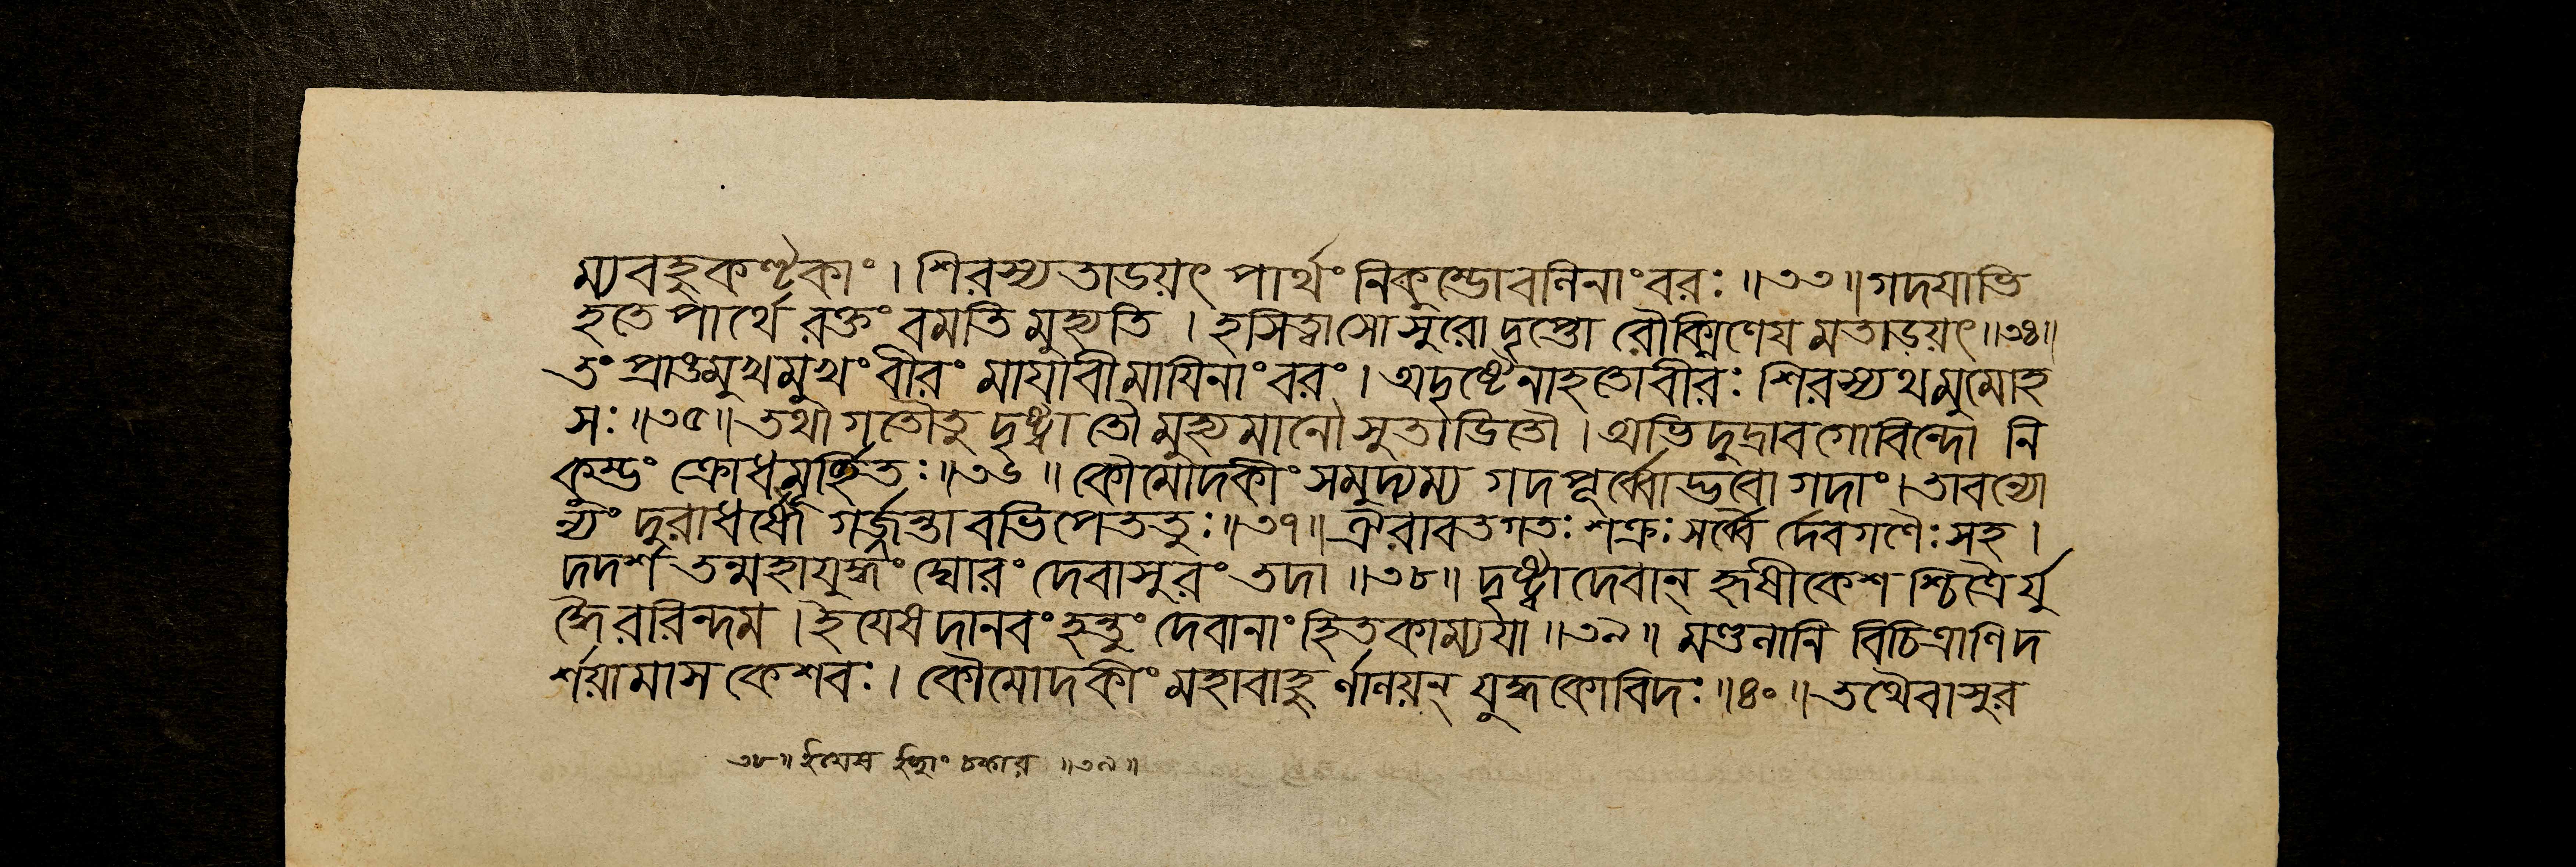 ম্যবহুকণ্টকাং । শিরস্যতাডয়ৎ পার্থং নিকুম্ভোবনিনাংবরঃ ॥৩৩॥ গদযাভি
হতে পার্থে রক্তং বমতি মুহ্যতি । হসিত্বাসোসুরো দৃপ্তো রৌক্মিণেয মতাড়য়ৎ ॥৩৪॥
তং প্রাঙমুখমুখং বীরং মাযাবীমাযিনাংবরং । অদৃষ্টেনাহতোবীরঃ শিরস্যথমুমোহ
সঃ ॥৩৫॥ তথা গতৌতু দৃষ্ট্বা তৌ মুহ্যমানৌ সুতাডিতৌ । অভিদুদ্রাবগোবিন্দো নি
কুম্ভং ক্রোধমূর্চ্ছিতঃ ॥৩৬॥ কৌমোদকীং সমুদ্যম্য গদপূর্ব্বোদ্ভবো গদাং । তাবন্যো
ন্যং দুরাধর্ষৌ গর্জ্জন্তাবভিপেততুঃ ॥৩৭॥ ঐরাবতগতঃ শক্রঃ সর্ব্বৈ র্দেবগণৈঃ সহ ।
দদর্শ তন্মহাযুদ্ধং ঘোরং দেবাসুরং তদা ॥৩৮॥ দৃষ্ট্বা দেবান্ হৃষীকেশ শ্চিত্রৈর্যু
দ্ধৈররিন্দম । ইযেষ দানবং হন্তুং দেবানাং হিতকাম্যযা ॥৩৯॥ মণ্ডনানি বিচিত্রাণি দ
র্শয়ামাস কেশবঃ । কৌমোদকীং মহাবাহু র্ণানয়ন্ যুদ্ধকোবিদঃ ॥৪০॥ তথৈবাসুর
৩৮॥ ইযেষ ইচ্ছাং চকার ॥৩৯॥